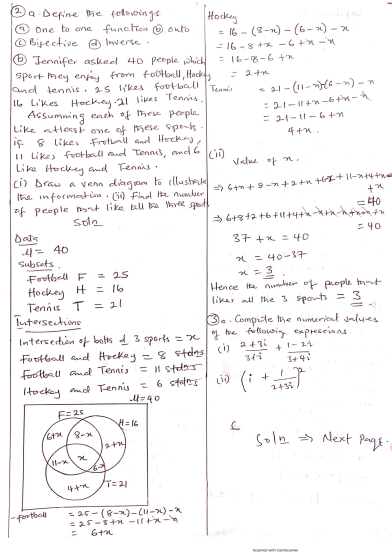 ② a. Define the followings
ⓐ One to one function ⓑ onto
ⓒ Bijective ⓓ Inverse.
ⓑ Jennifer asked 40 people which
sport they enjoy from football, Hockey
and tennis. 25 likes football
16 likes Hockey. 21 likes Tennis.
Assuming each of these people
like atleast one of these sports.
if 8 likes Football and Hockey,
11 likes football and Tennis, and 6
like Hockey and Tennis.
(i) Draw a venn diagram to illustrate
the information. (ii) Find the number
of people that like all the three sports
Soln
Data
μ = 40
Subsets
Football F = 25
Hockey H = 16
Tennis T = 21
Intersections
Intersection of both of 3 sports = x
Football and Hockey = 8
Football and Tennis = 11
Hockey and Tennis = 6
μ=40
F=25
H=16
6+x 8-x 2+x
11-x x 6-x
4+x T=21
-football = 25-(8-x)-(11-x)-x
= 25-8+x-11+x-x
= 6+x
Hockey
= 16-(8-x)-(6-x)-x
= 16-8+x-6+x-x
= 16-8-6+x
= 2+x
Tennis = 21-(11-x)(6-x)-x
= 21-11+x-6+x-x
= 21-11-6+x
4+x.
(ii)
Value of x.
⇒ 6+x+8-x+2+x+6-x+11-x+4+x
+x
=40
⇒ 6+8+2+6+11+4+x-x+x-x+x-x+x
=40
37+x = 40
x = 40-37
x = 3.
Hence the number of people that
likes all the 3 sports = 3
③ a. Compute the numerical values
of the following expressions.
(i) 2+3i/3+i + 1-2i/3+4i
(ii) (i + 1/2+3i)²
Soln ⇒ Next page.
Scanned with CamScanner